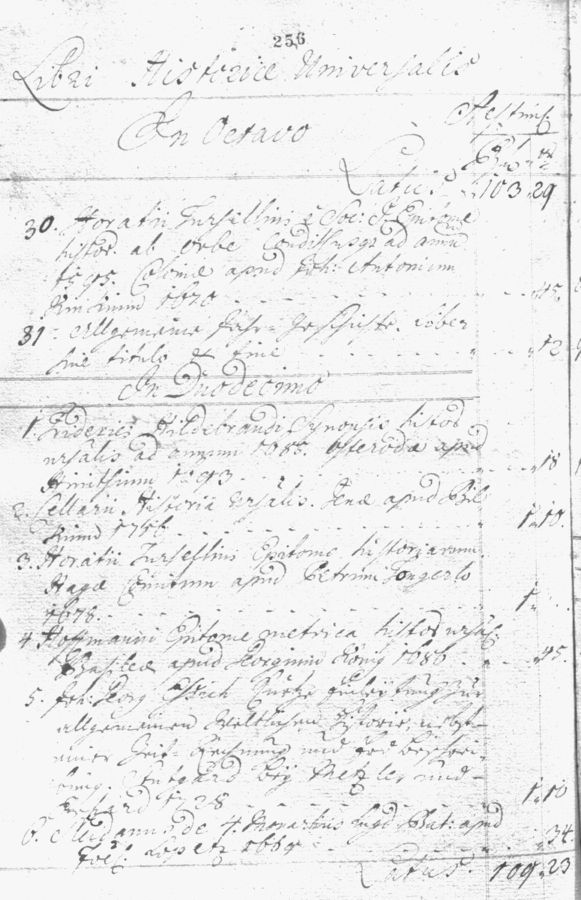 256
Libri Historiæ Universalis
In Octavo
Æstim.
Latus 103 29
30. Horatii Tursellini è Soc: J. Epitome
histor. ab orbe condito usq; ad annū
1595. Coloniæ apud Joh: Antonium
Kinckium 1670 45
31. Allgemeine Jahr-Geschichte.
sine titulo & fine 12
In Duodecimo
1. Friderici Hildebrandi Synopsis histor
ursalis ad annum 1685. Osterodæ apud
1693 18
2. Cellarii Historia ursalis. Jenæ apud Biel
kium 1 10.
3. Horatii Tursellini Epitome historiarum.
Hagæ Comitum apud Petrum
1678. 1
4. Hoffmanni Epitome metrica histor ursal:
Basileæ apud Georgium König 1686 45.
5. Joh: Georg Essich Kurtze Einleitung zur
allgemeinen Weltlichen Historie,
Zeit-Rechnung und
bung. Stutgard bey Metzler und
Erhard 1728 1 10
6. Sleidanus de 4. Monarchiis Lugd Bat: apud
Fel: Lopetz 34
Latus. 109 23